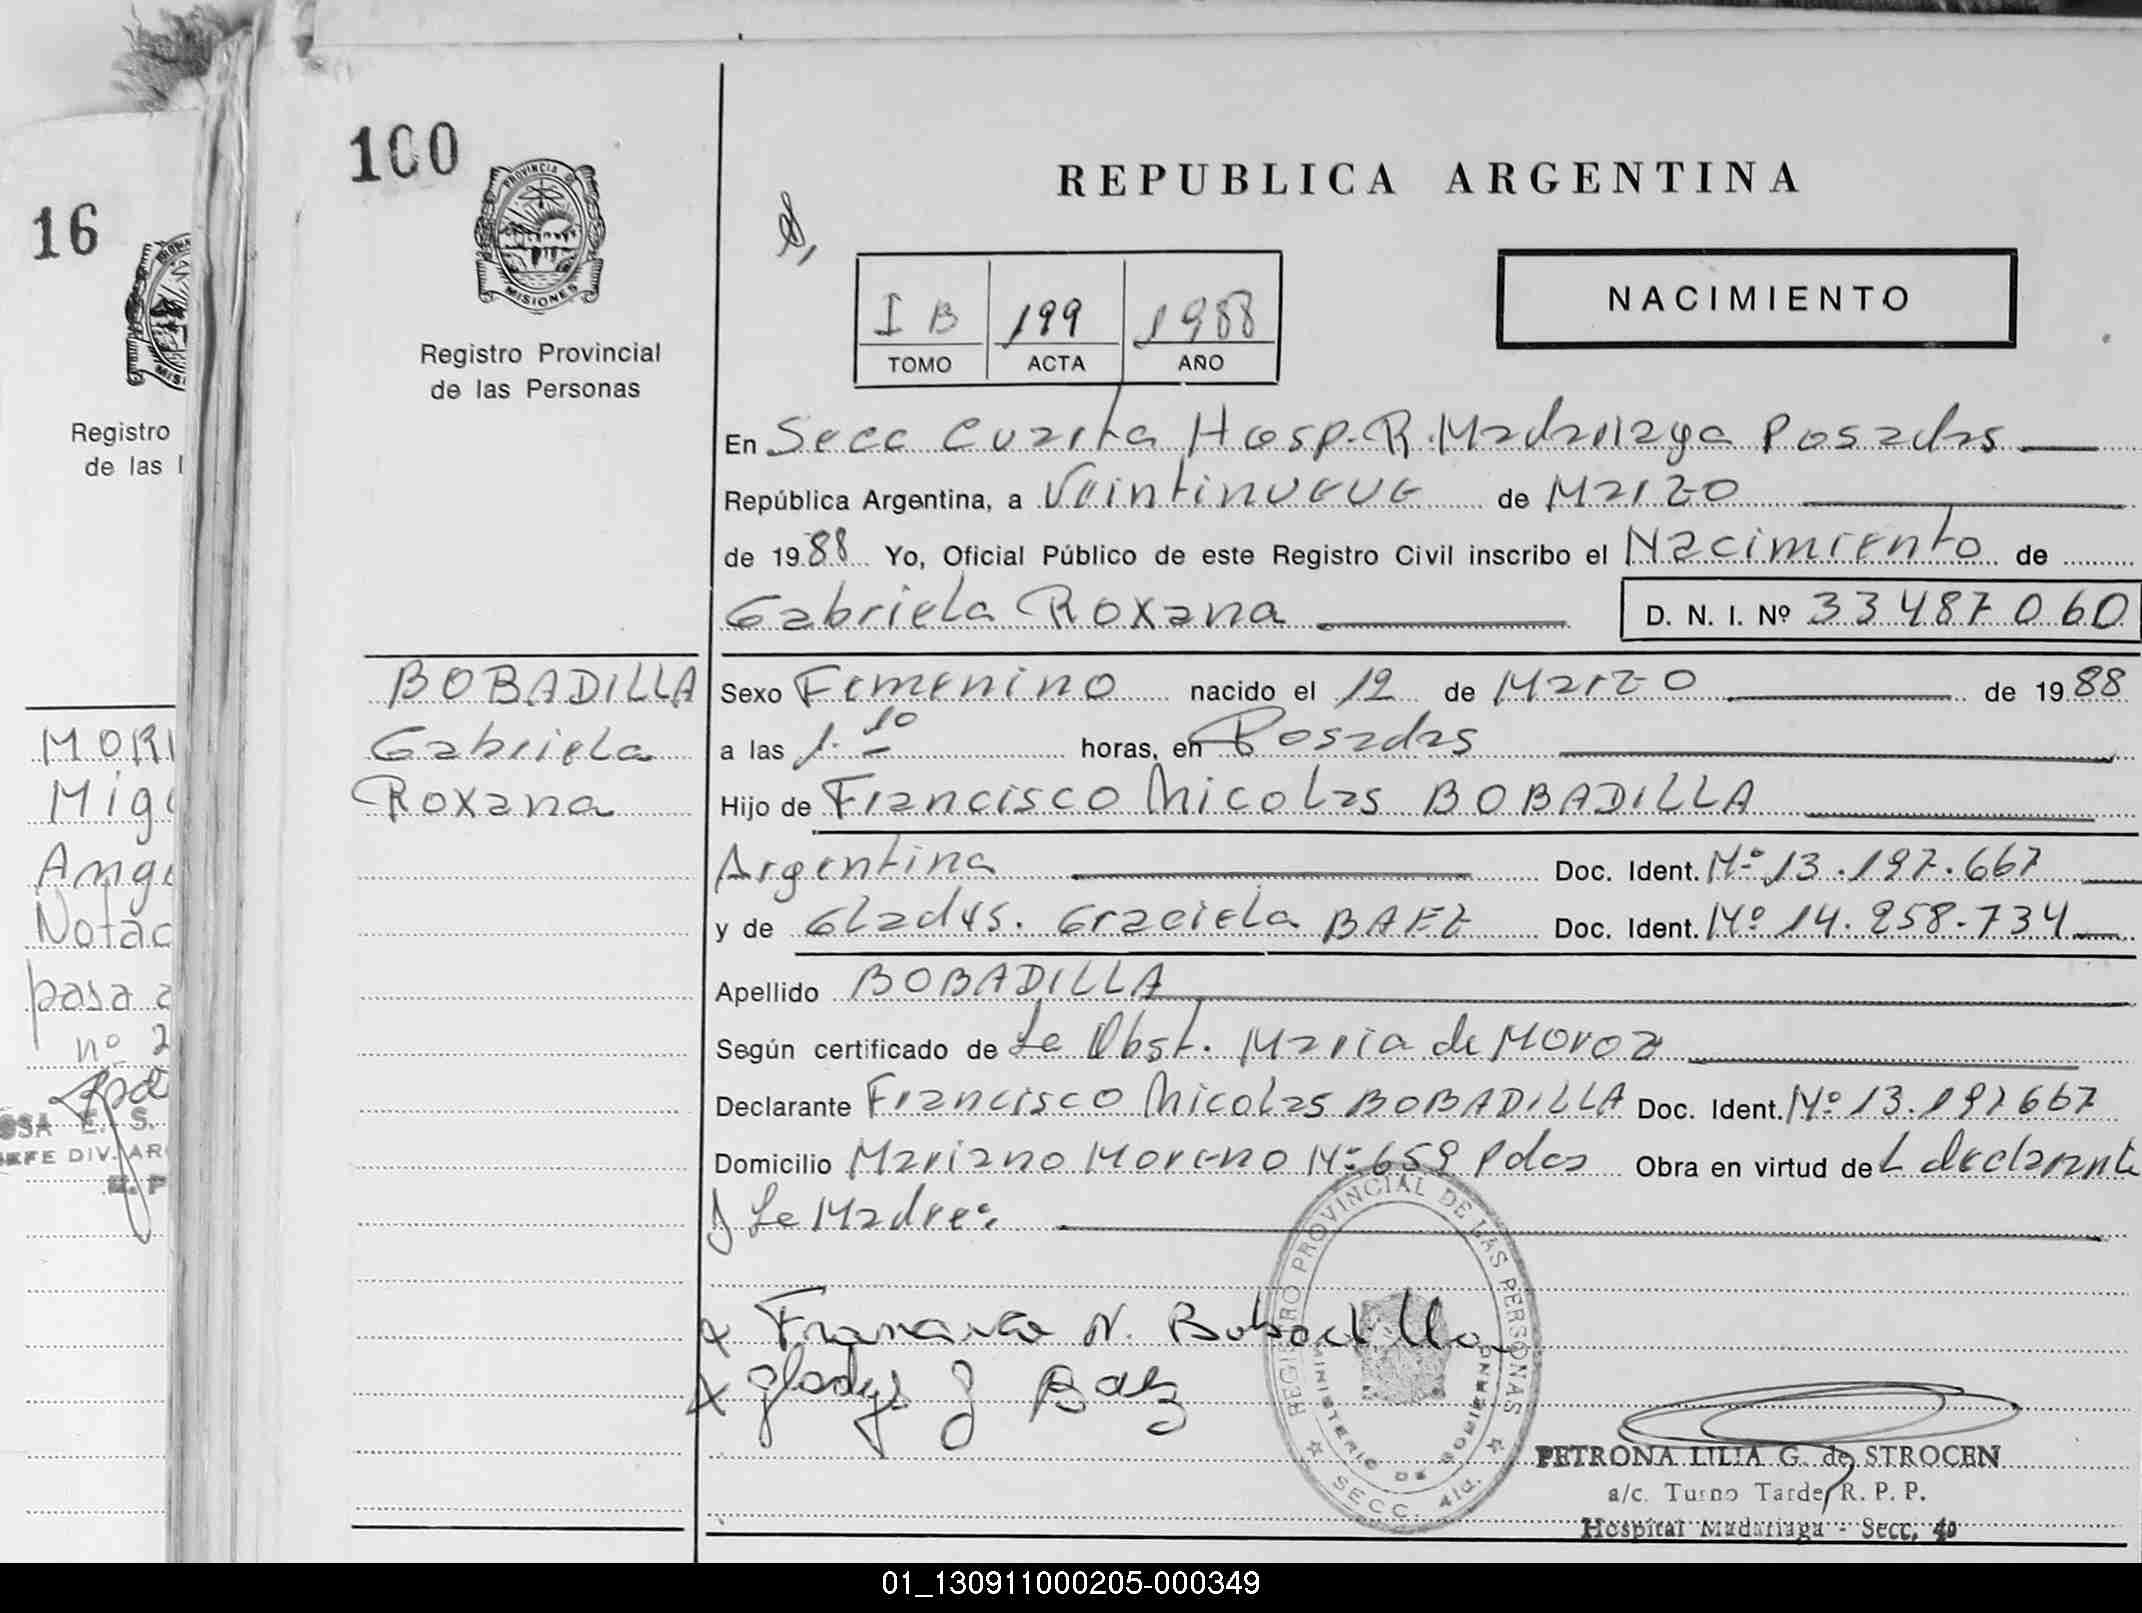 16
Registro
de las
MORI
Mig
Ang
Notac
pasa a
nº 2
OSA E. S.
JEFE DIV. AR
100
PROVINCIA DE
MISIONES
Registro Provincial
de las Personas
BOBADILLA
Gabriela
Roxana
REPUBLICA ARGENTINA
NACIMIENTO
I B 199 1988
TOMO ACTA AÑO
En Secc Cuarta Hosp. R. Madariaga Posadas
República Argentina, a Veintinueve de Marzo
de 1988 Yo, Oficial Público de este Registro Civil inscribo el Nacimiento de
Gabriela Roxana D. N. I. Nº 33487060
Sexo Femenino nacido el 12 de Marzo de 1988
a las 1.10 horas, en Posadas
Hijo de Francisco Nicolas BOBADILLA
Argentina Doc. Ident. Nº 13.197.667
y de Gladys. Graciela BAEZ Doc. Ident. Nº 14.258.734
Apellido BOBADILLA
Según certificado de La Obst. Maria de Moroz
Declarante Francisco Nicolas BOBADILLA Doc. Ident. Nº 13.197667
Domicilio Mariano Moreno Nº 659 Pdas Obra en virtud de L declarante
y La Madre:
Francisco N. Bobadilla
Gladys G Baez
REGISTRO PROVINCIAL DE LAS PERSONAS
MINISTERIO DE GOBIERNO
SECC. 4ta.
PETRONA LILIA G. de STROCEN
a/c. Turno Tarde R. P. P.
Hospital Madariaga - Secc. 4o
01_130911000205-000349